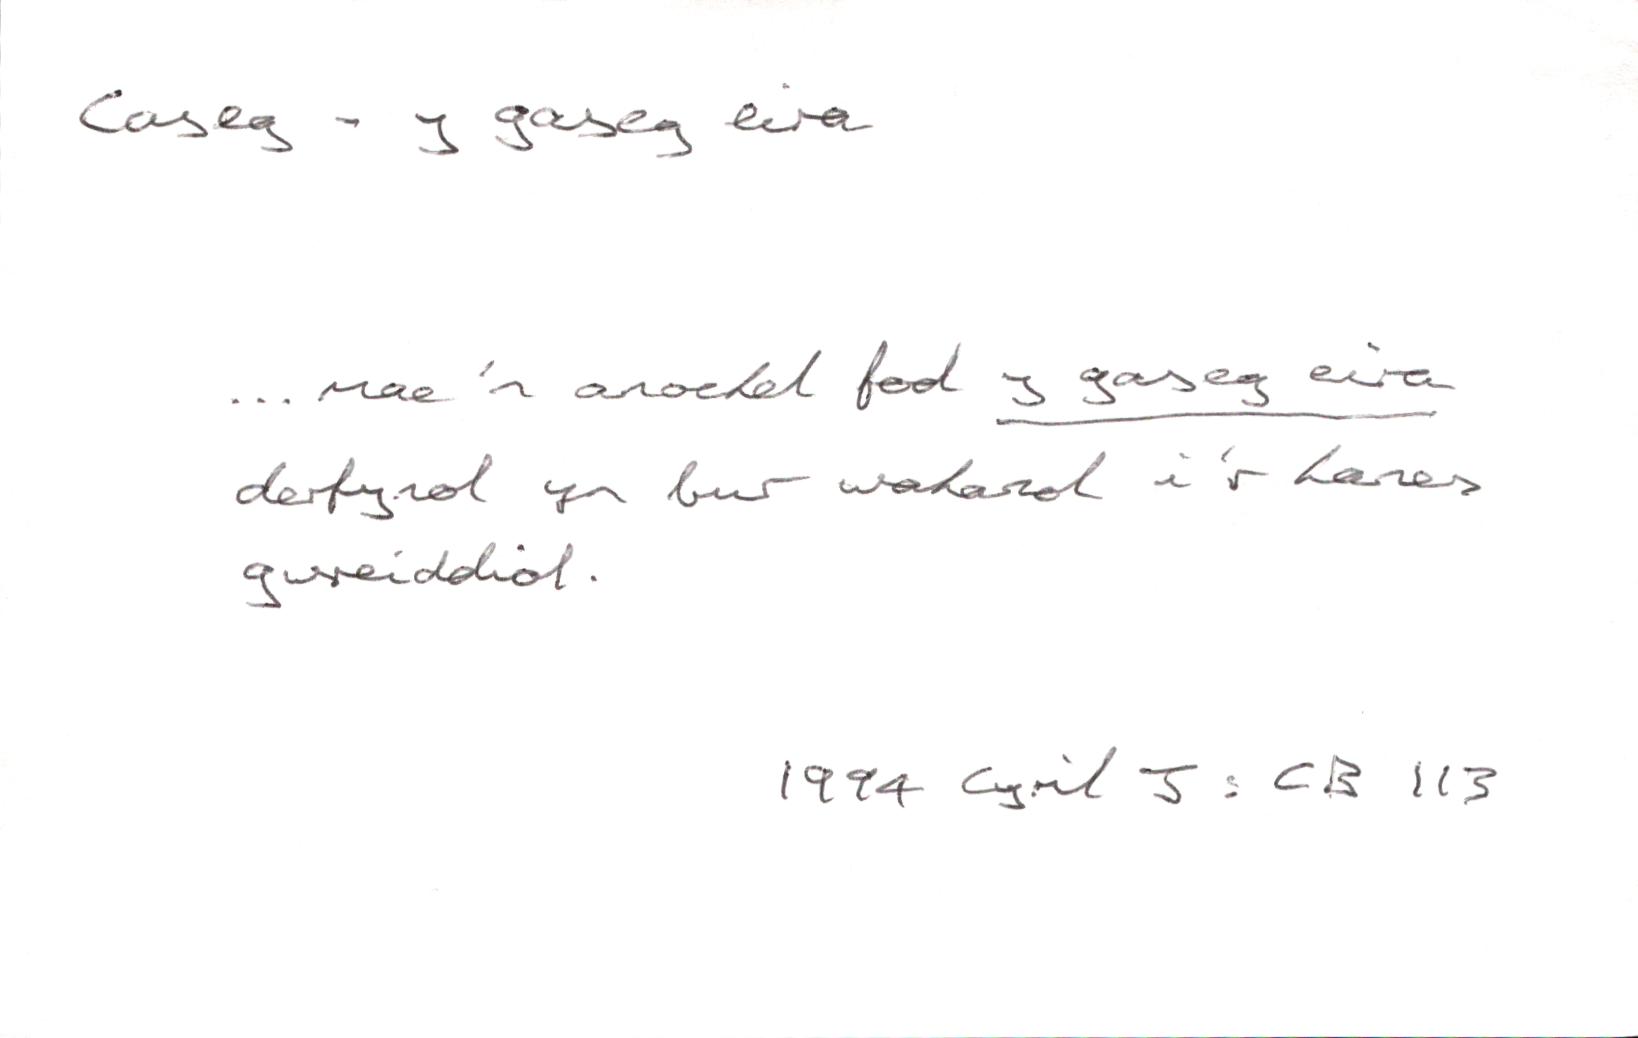 Caseg - y gaseg eira
... mae'n anochel fod y gaseg eira
derfynol yn bur wahanol i'r hanes
gwreiddiol.
1994 Cyril J: CB 113